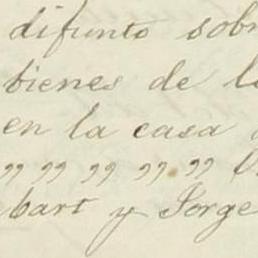 difunto sobr
bienes de lo
en la casa
,, ,, ,, ,, ,,
bart y Jorge